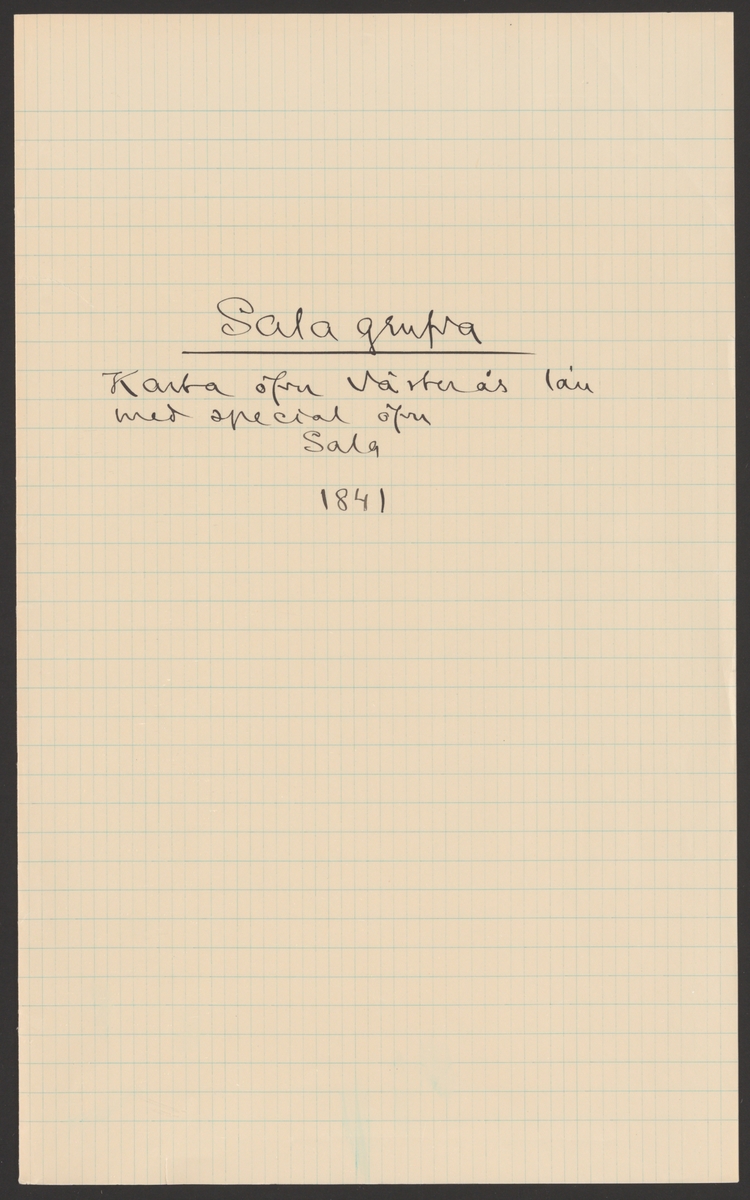 Sala grufva
Karta öfver Västerås län
med special öfver
Sala
1841